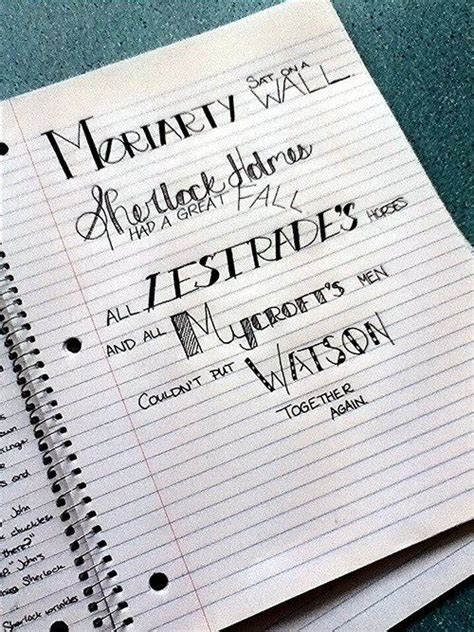 MORIARTY SAT ON A
WALL.
Sherlock Holmes
HAD A GREAT FALL
ALL LESTRADE'S HORSES
AND ALL MYCROFT'S MEN
COULDN'T PUT WATSON
TOGETHER
AGAIN.
John
chuckles
there?"
John's
Sherlock
Sherlock wrinkles